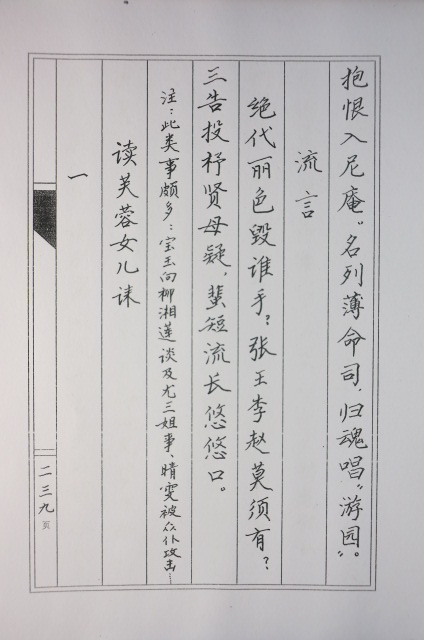 抱恨入尼庵。名列薄命司，归魂唱“游园”。
流言
绝代丽色毁谁手？张王李赵莫须有？
三告投杼贤母疑，蜚短流长悠悠口。
注：此类事颇多：宝玉向柳湘莲谈及尤三姐事、晴雯被众仆攻击……
读芙蓉女儿诔
一
二三九页